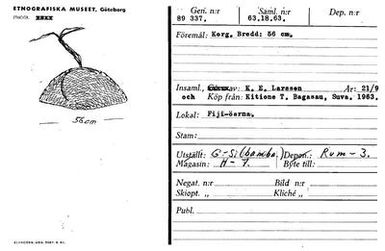 ETNOGRAFISKA MUSEET, Göteborg
56 cm
Gen. n:r
89 337.
Saml. n:r
63.18.63.
Dep. n:r
Föremål: Korg. Bredd: 56 cm.
Insaml. av K. E. Larsson Ar: 21/9
och Köp från: Kitione T. Bagasau, Suva, 1963.
Lokal: Fiji-öarna.
Stam:
Utställt: G-Si(bamba.) Depon.: Rum-3.
Magasin: H-7. Byte till:
Negat. n:r Bild n:r
Skiopt. „ Kliché „
Publ.